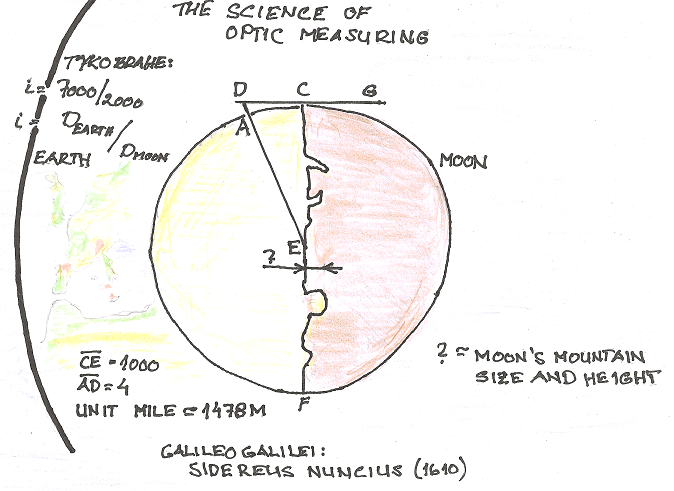 THE SCIENCE OF
OPTIC MEASURING
TYKO BRAHE:
i = 7000/2000
i = D EARTH / D MOON
EARTH
D C G
A
MOON
E
?
CE = 1000
AD = 4
UNIT MILE = 1478 M
? = MOON'S MOUNTAIN
SIZE AND HEIGHT
F
GALILEO GALILEI:
SIDEREUS NUNCIUS (1610)